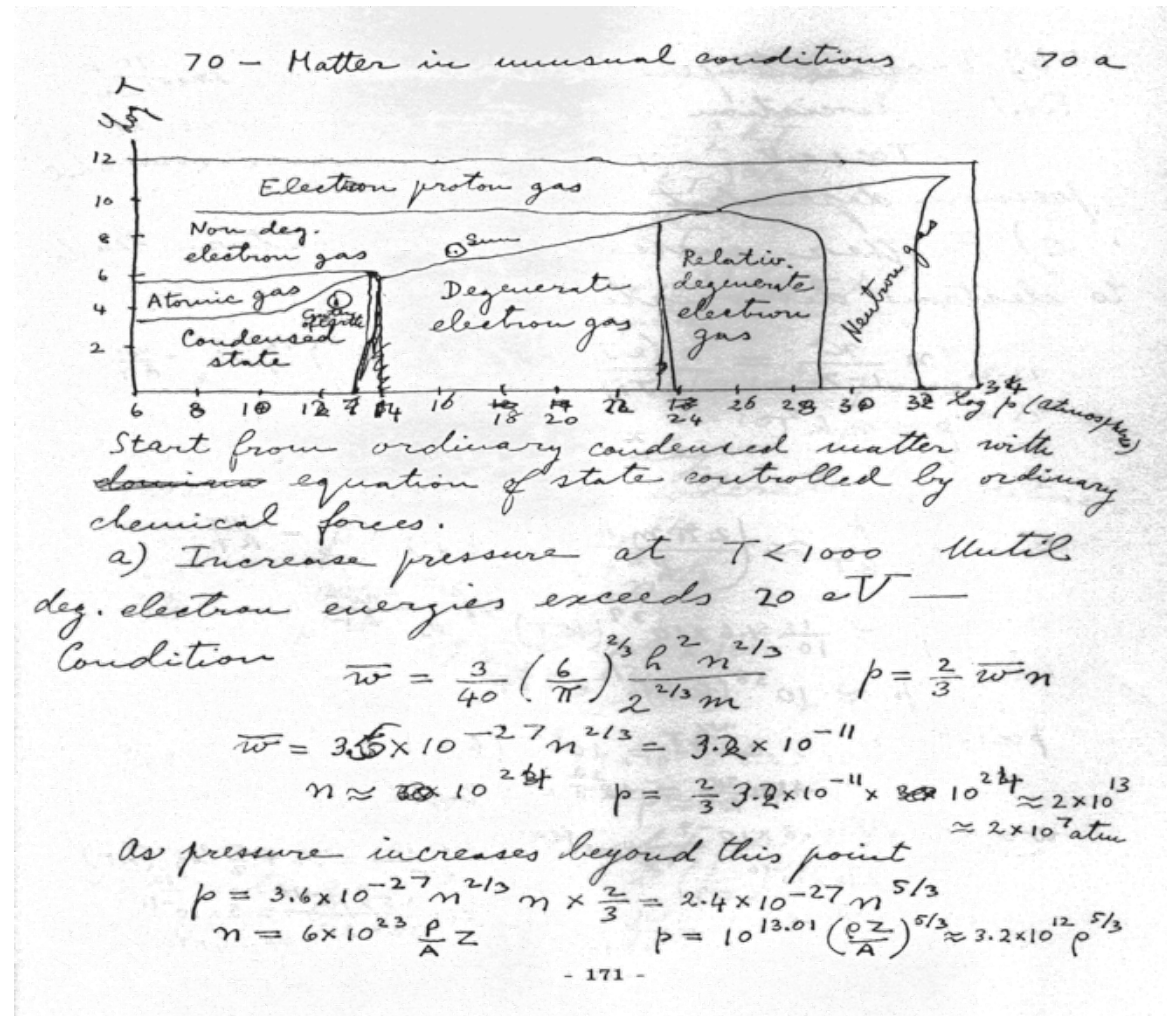 70 - Matter in unusual conditions 70 a
Log T
12
Electron proton gas
10
Non deg.
electron gas
8
Sun
6
Atomic gas
4
Condensed
state
2
Degenerate
electron gas
Relativ.
degenerate
electron
gas
Neutron gas
6 8 10 12 14 16 18 20 22 24 26 28 30 32 34 Log p (atmospheres)
Start from ordinary condensed matter with
equation of state controlled by ordinary
chemical forces.
a) Increase pressure at T < 1000 Until
deg. electron energies exceeds 20 eV —
Condition w̄ = 3/40 (6/π)^2/3 h^2 n^2/3 / 2^2/3 m p = 2/3 w̄ n
w̄ = 3.6 × 10^-27 n^2/3 = 3.2 × 10^-11
n ≈ 10^24 p = 2/3 3.2 × 10^-11 × 10^24 ≈ 2 × 10^13
≈ 2 × 10^7 atm
As pressure increases beyond this point
p = 3.6 × 10^-27 n^2/3 n × 2/3 = 2.4 × 10^-27 n^5/3
n = 6 × 10^23 ρ/A Z p = 10^13.01 (ρZ/A)^5/3 ≈ 3.2 × 10^12 ρ^5/3
- 171 -